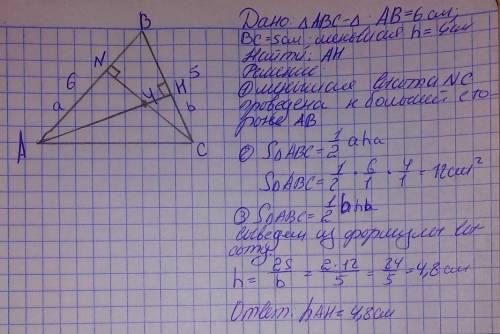 Дано: △ABC-△; AB=6см;
BC=5см; меньшая h=4см
Найти: AH
Решение
① меньшая высота NC
проведена к большей сто-
роне AB
② S△ABC = 1/2 aha
S△ABC = 1/2 · 6/1 · 4/1 = 12см²
③ S△ABC = 1/2 bhb
выведем из формулы вы-
соту:
h = 2S/b = 2·12/5 = 24/5 = 4,8см
Ответ: hAH = 4,8см
B
N
6
a
4
H
5
b
A
C